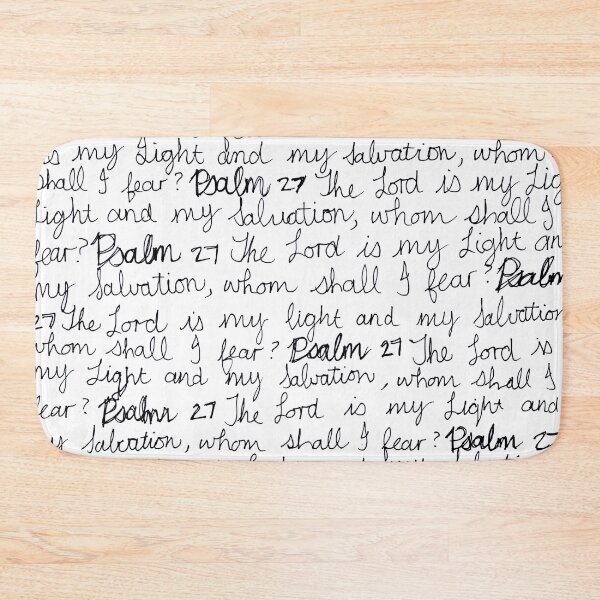 is my Light and my Salvation, whom
shall I fear? Psalm 27 The Lord is my Lig
Light and my Salvation, whom shall I
fear? Psalm 27 The Lord is my Light an
my Salvation, whom shall I fear? Psalm
27 The Lord is my light and my Salvation
whom shall I fear? Psalm 27 The Lord is
my Light and my Salvation, whom shall I
fear? Psalm 27 The Lord is my Light and
my Salvation, whom shall I fear? Psalm 27